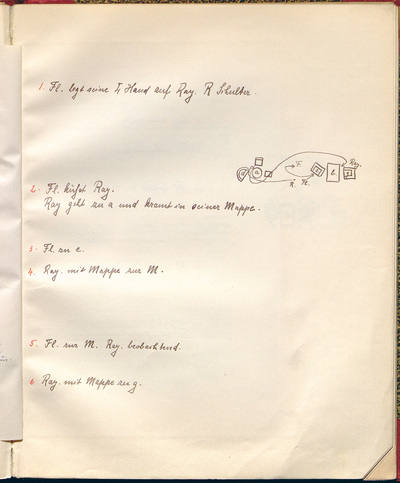 1. Fl. legt seine L Hand auf Ray. R Schulter.
Ray.
R. Fl.
2. Fl. küßt Ray.
Ray geht zu a und kramt in seiner Mappe.
3. Fl. zu c.
4. Ray. mit Mappe zur M.
5. Fl. zur M. Ray. beobachtend.
6 Ray. mit Mappe zu g.